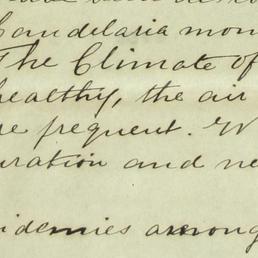 Candelaria mon
The Climate of
healthy, the air
re frequent. W
uration and ne
idemies among